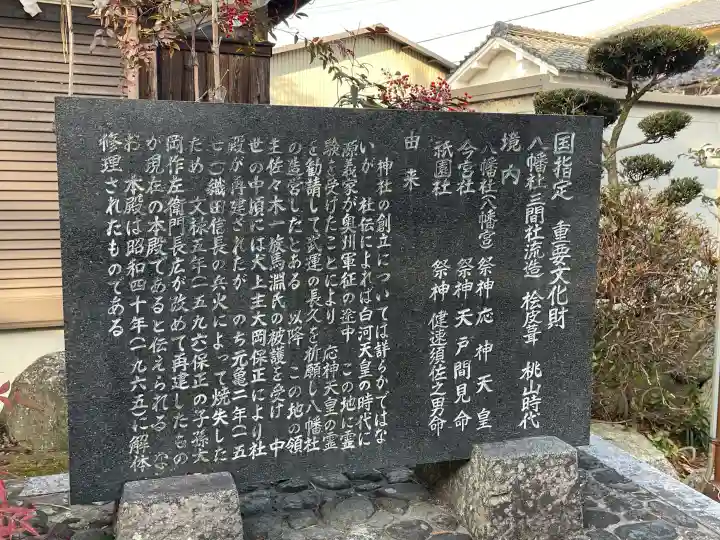 国指定 重要文化財
八幡社三間社流造 桧皮葺 桃山時代
境内
八幡社八幡宮 祭神 応神天皇
今宮社 祭神 天戸間見命
祇園社 祭神 健速須佐之男命
由来
神社の創立については詳らかではな
いが 社伝によれば白河天皇の時代に
源義家が奥州軍征の途中 この地に霊
験を受けたことにより 応神天皇の霊
を勧請して武運の長久を祈願し八幡社
の造営したとある 以降 この地の領
主佐々木一族馬淵氏の被護を受け 中
世の中頃には大上主大岡保正により社
殿が再建されたが のち元亀二年(一五
七一)織田信長の兵火によって焼失した
ため 文禄五年(一五九六)保正の子孫大
岡作左衛門長広が改めて再建したもの
が現在の本殿であると伝えられる な
お 本殿は昭和四十年(一九六五)に解体
修理されたものである